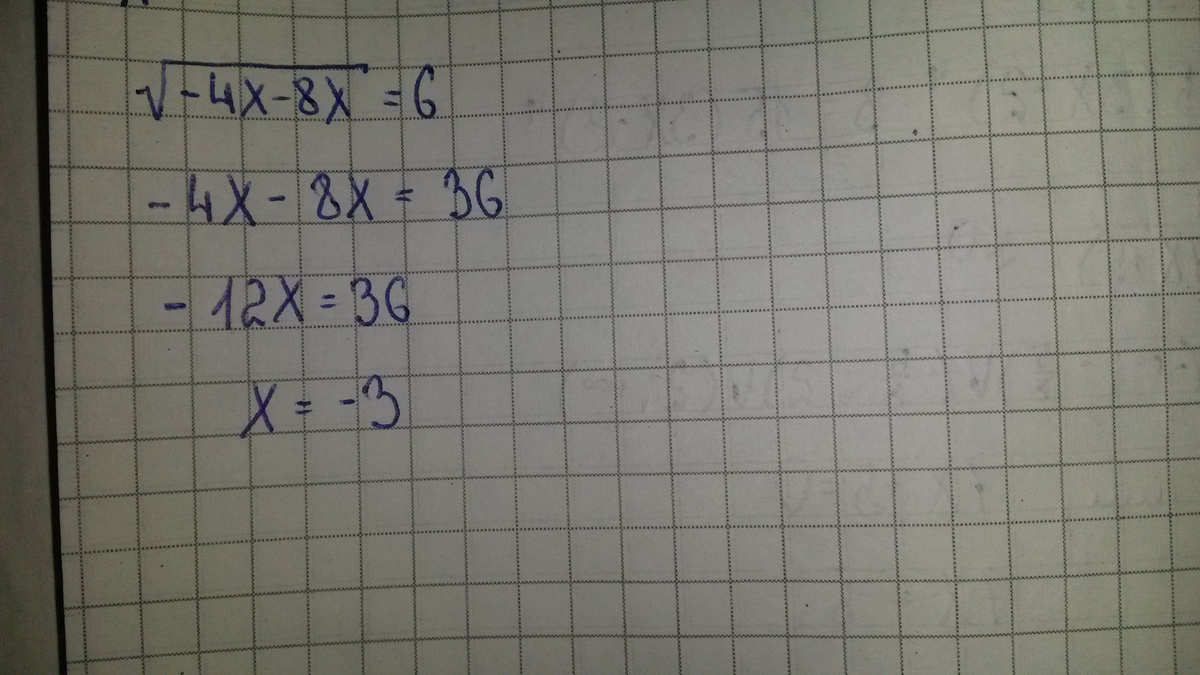 √-4X-8X = 6
-4X-8X = 36
-12X = 36
X = -3